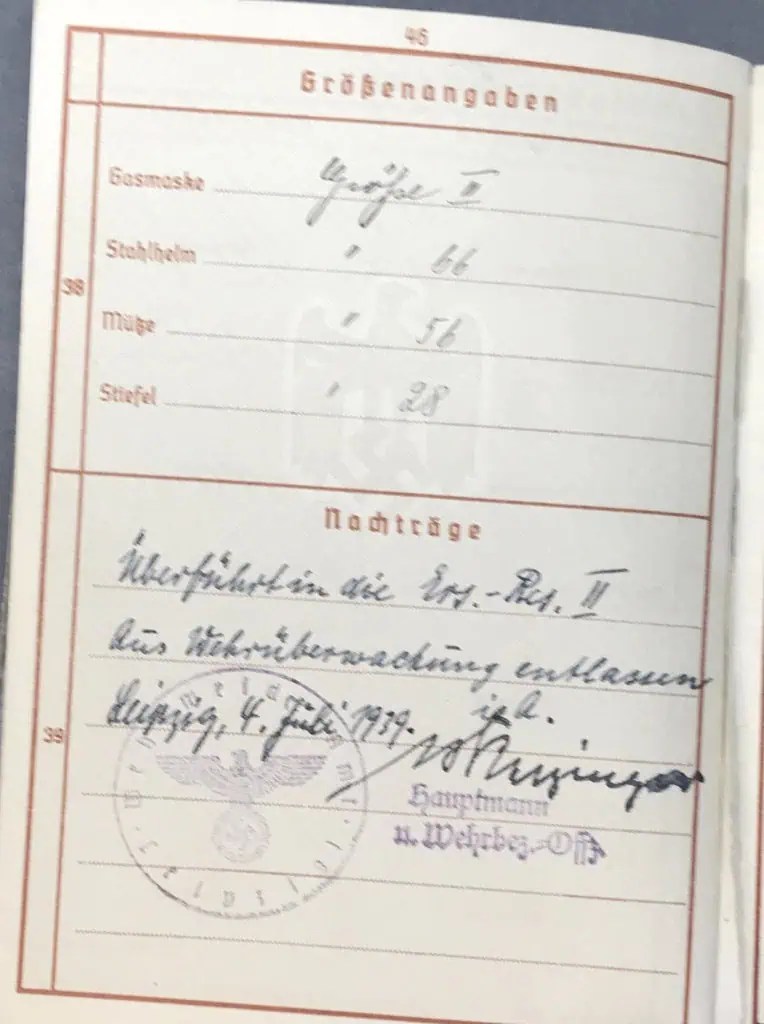 46
Größenangaben
38
Gasmaske Größe II
Stahlhelm " 66
Mütze " 56
Stiefel " 28
39
Nachträge
Überführt in die Ers.-Res. II
Aus Wehrüberwachung entlassen
Leipzig, 4. Juli 1939. i. A.
Hauptmann
u. Wehrbez.-Offz